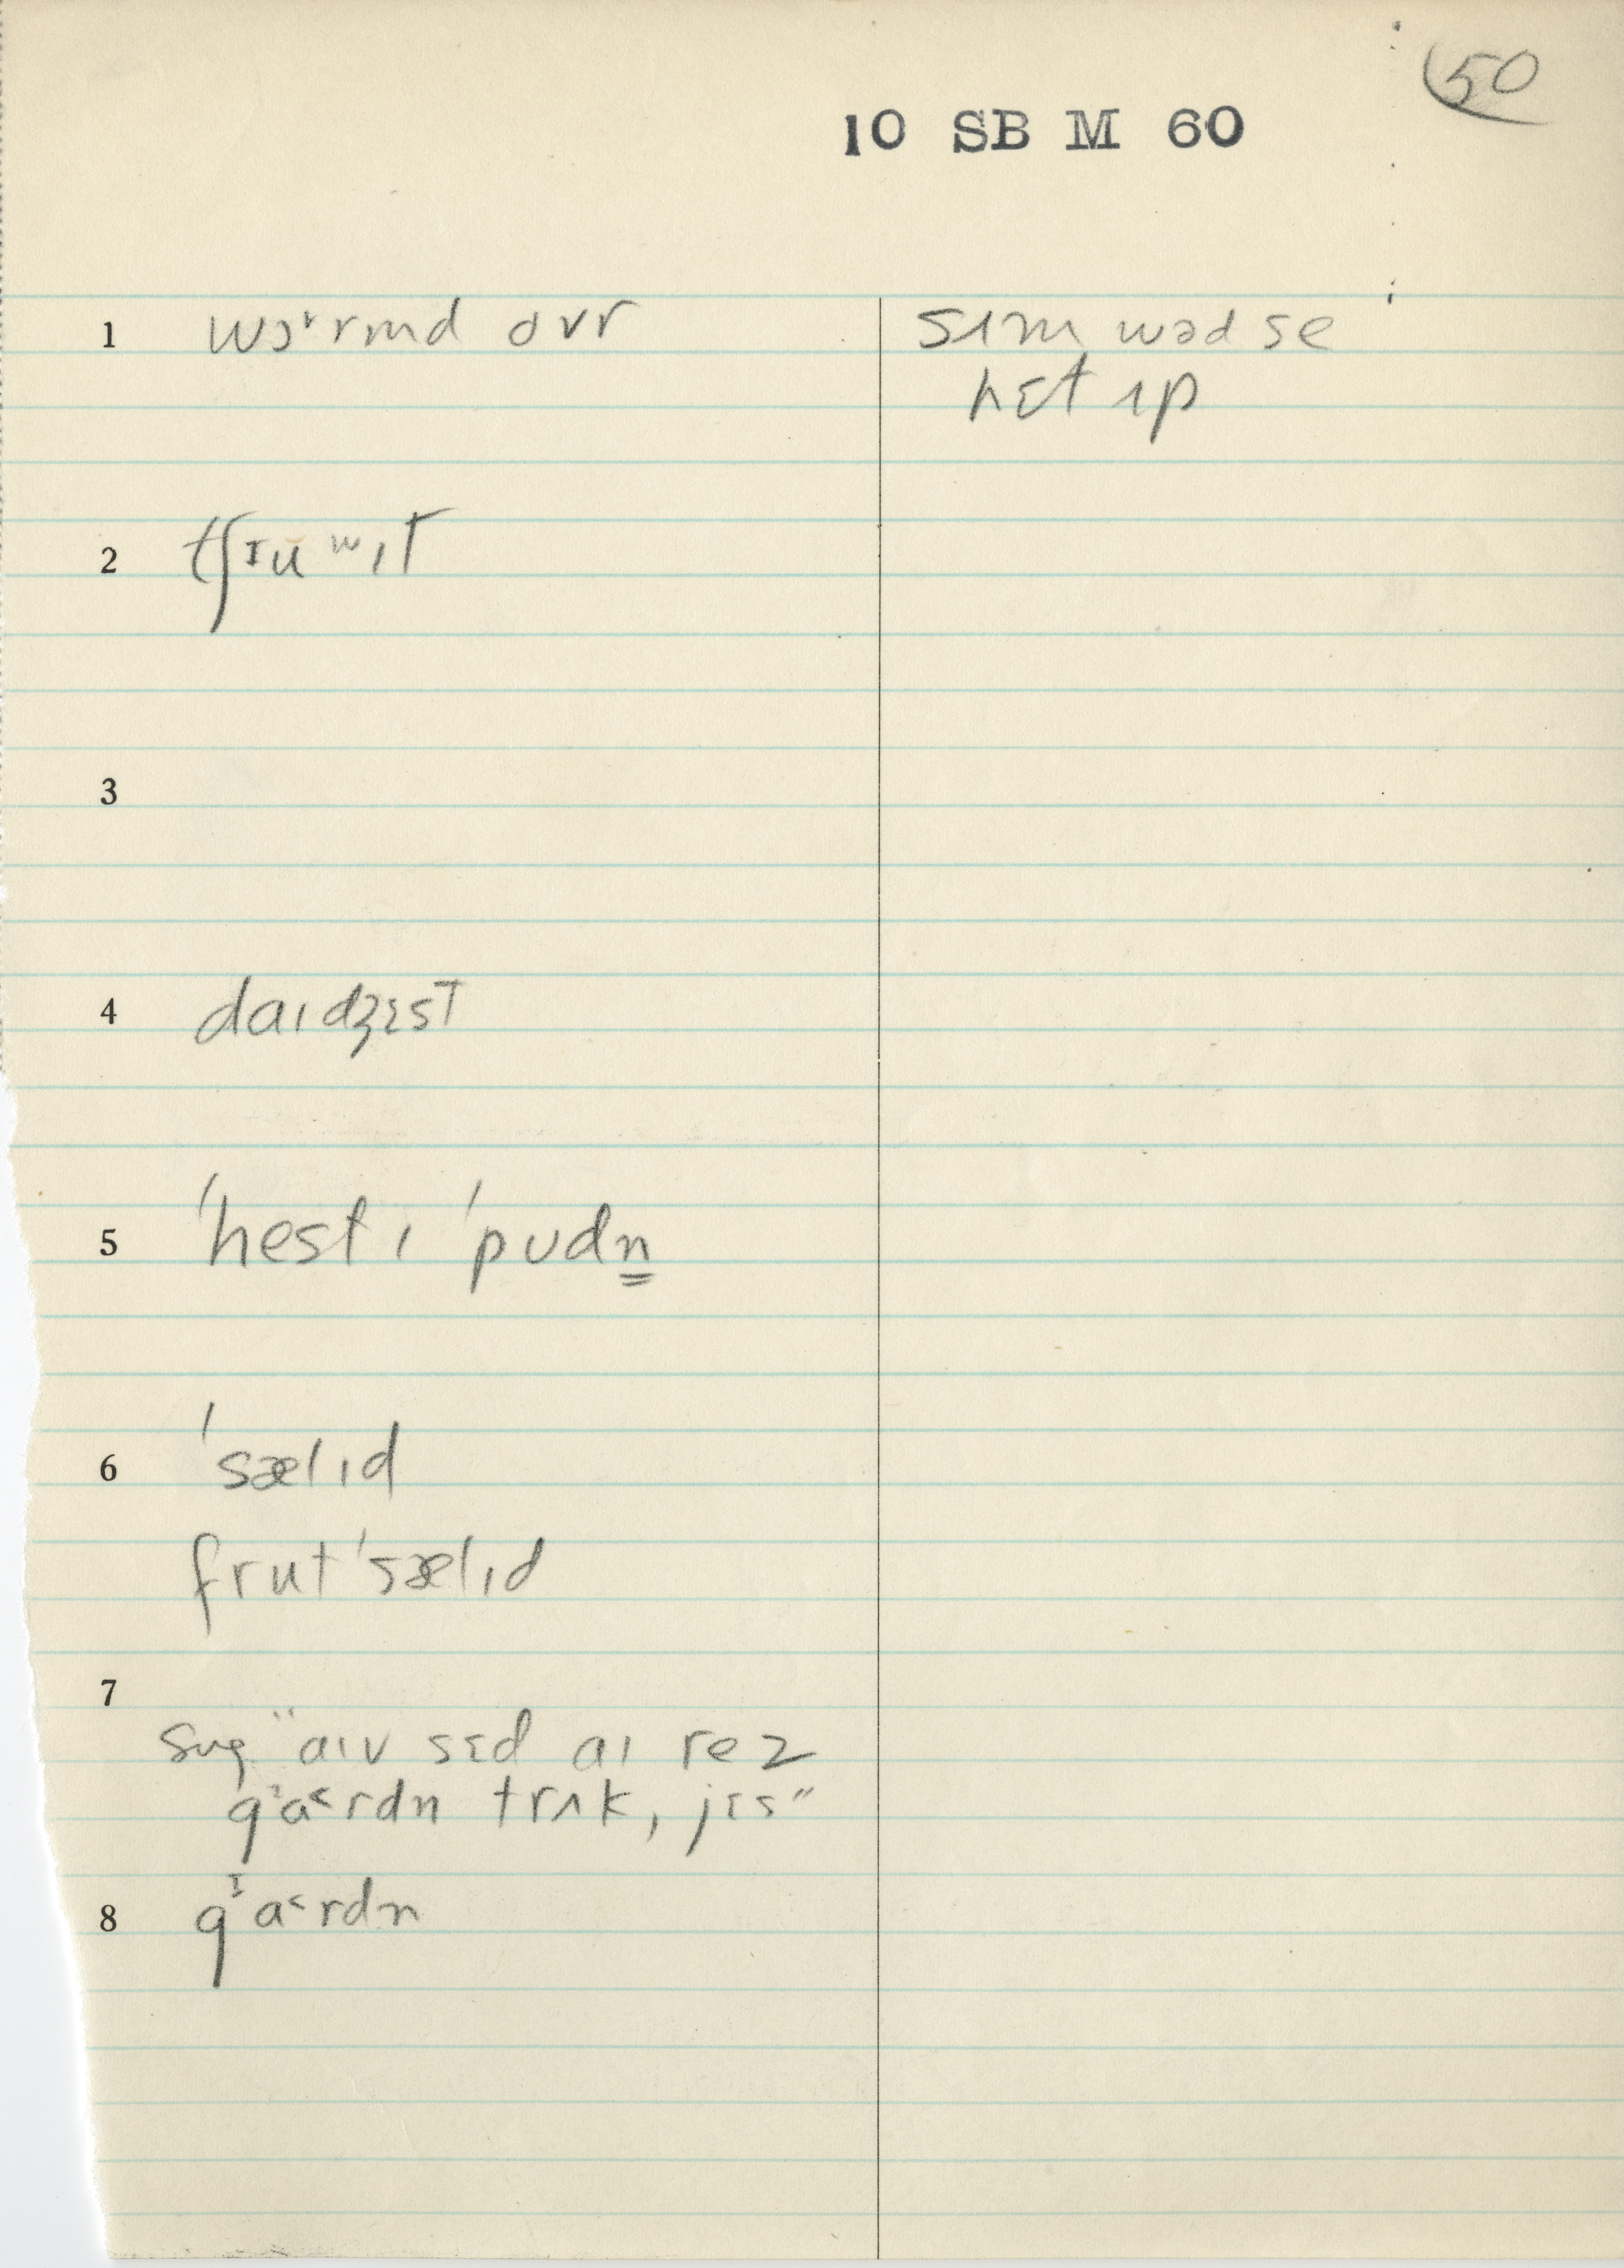 50
10 SB M 60
1 wɔ˞rmd ovr
sɪm wəd se
hɛt ʌp
2 tʃɪu ʷɪt
3
4 daɪdʒɛst
5 ˈhestɪ ˈpʊdn̳
6 ˈsælɪd
frutˈsælɪd
7
sug "aɪv sɛd aɪ rez
gᶦa˂rdn trʌk, jɛs"
8 gᶦa˂rdn